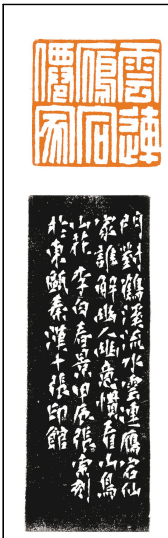 雲連
鴈宕
僊家
門對鶴溪流水雲連雁宕仙
家誰解幽人幽意慣看山鳥
山花 李白春景甲辰張索刻
於東甌秦漢十張印館